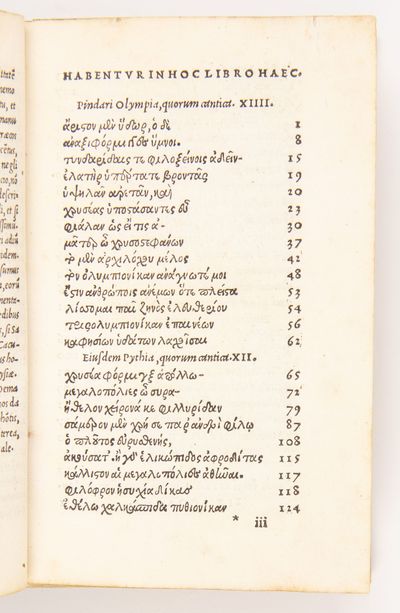 HABENTVR IN HOC LIBRO HAEC.
Pindari Olympia, quorum cantica. XIIII.
ἄριστον μὲν ὕδωρ, ὁ δὲ 1
ἀναξιφόρμιγγες ὕμνοι. 8
τυνδαρίδαις τε φιλοξείνοις ἁδεῖν- 15
ἐλατὴρ ὑπέρτατε βροντᾶς 19
ὑψηλᾶν ἀρετᾶν, καὶ 20
χρυσέας ὑποστάσαντες εὖ 23
φιάλαν ὡς εἴ τις ἀ- 30
μᾶτερ ὦ χρυσοστεφάνων 37
τὸ μὲν ἀρχιλόχου μέλος 42
τὸν ὀλυμπιονίκαν ἀνάγνωτέ μοι 48
ἔστιν ἀνθρώποις ἀνέμων ὅτε πλεῖστα 53
λίσσομαι παῖ ζηνὸς ἐλευθερίου 54
τρισολυμπιονίκαν ἐπαινέων 56
καφησίων ὑδάτων λαχοῖσαι 62
Eiusdem Pythia, quorum cantica. XII.
χρυσέα φόρμιγξ ἀπόλλω- 65
μεγαλοπόλιες ὦ συρα- 72
ἤθελον χείρονά κε φιλλυρίδαν 79
σάμερον μὲν χρή σε παρ' ἀνδρὶ φίλῳ 87
ὁ πλοῦτος εὐρυσθενής, 108
ἀκούσατ'. ἢ γὰρ ἑλικώπιδος ἀφροδίτας 115
κάλλιστον αἱ μεγαλοπόλιες ἀθᾶναι. 117
φιλόφρον ἡσυχία δίκας 118
ἐθέλω χαλκάσπιδα πυθιονίκαν 124
* iii